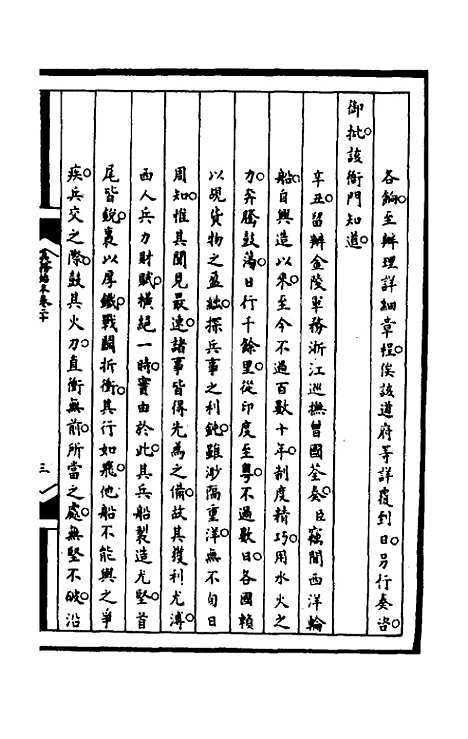 各餉至辦理詳細章程俟該道府等詳覆到日另行奏咨
御批該衙門知道
辛丑留辦金陵軍務浙江巡撫曾國荃奏臣竊聞西洋輪
船自興造以來至今不過百數十年制度精巧用水火之
力奔騰鼓蕩日行千餘里從印度至粵不過數日各國賴
以覘貨物之盈絀探兵事之利鈍雖渺隔重洋無不旬日
周知惟其聞見最速諸事皆得先為之備故其獲利尤溥
西人兵力財賦橫絕一時實由於此其兵船製造尤堅首
尾皆銳裹以厚鐵戰鬬折衝其行如飛他船不能與之爭
疾兵交之際鼓其火力直衝無前所當之處無堅不破沿
三